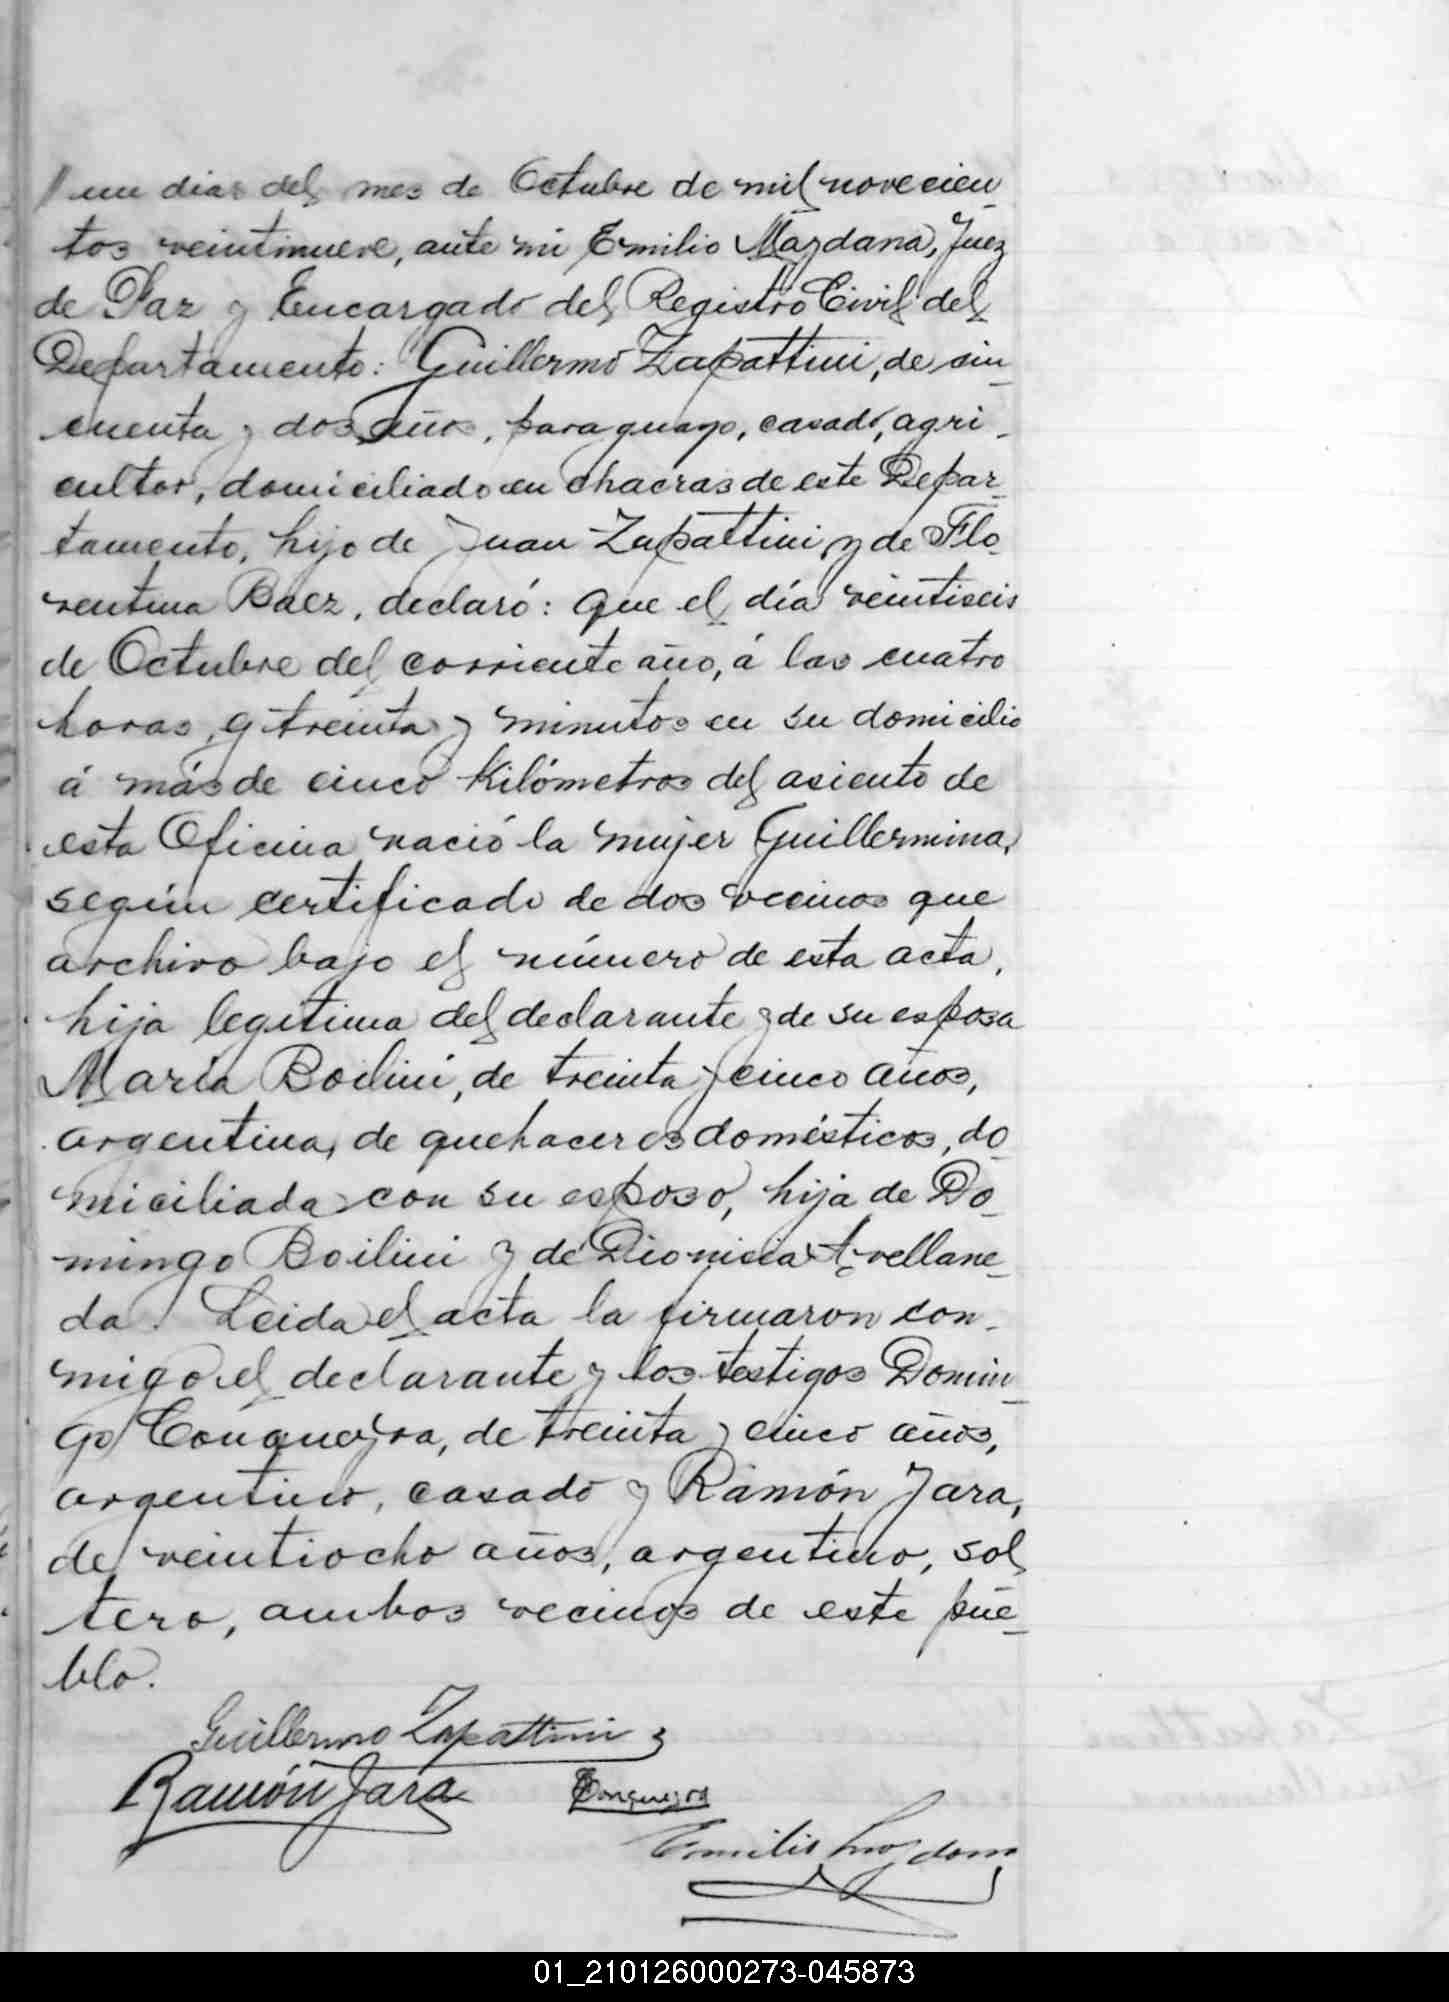 un dias del mes de Octubre de mil novecien-
tos veintinueve, ante mi Emilio Mazdana, Juez
de Paz y Encargado del Registro Civil del
Departamento: Guillermo Zapattini, de sin-
cuenta y dos años, paraguayo, casado, agri-
cultor, domiciliado en chacras de este Depar-
tamento, hijo de Juan Zapattini y de Flo-
rentina Baez, declaró: que el día veintiseis
de Octubre del corriente año, á las cuatro
horas, y treinta y minutos en su domicilio
á más de cinco Kilómetros del asiento de
esta Oficina nació la mujer Guillermina,
según certificado de dos vecinos que
archivo bajo el número de esta acta,
hija legitima del declarante y de su esposa
María Boilini, de treinta y cinco años,
argentina, de quehaceres domésticos, do
miciliada con su esposo, hija de Do-
mingo Boilini y de Dionisia Avellane-
da. Leida el acta la firmaron con-
migo el declarante y los testigos Domin-
go Conqueyra, de treinta y cinco años,
argentino, casado y Ramón Jara,
de veintiocho años, argentino, sol
tero, ambos vecinos de este pue-
blo.
Guillermo Zapattini
Ramón Jara Conqueyra
Emilio Mazdana
Zapattini
Guillermina
01_210126000273-045873